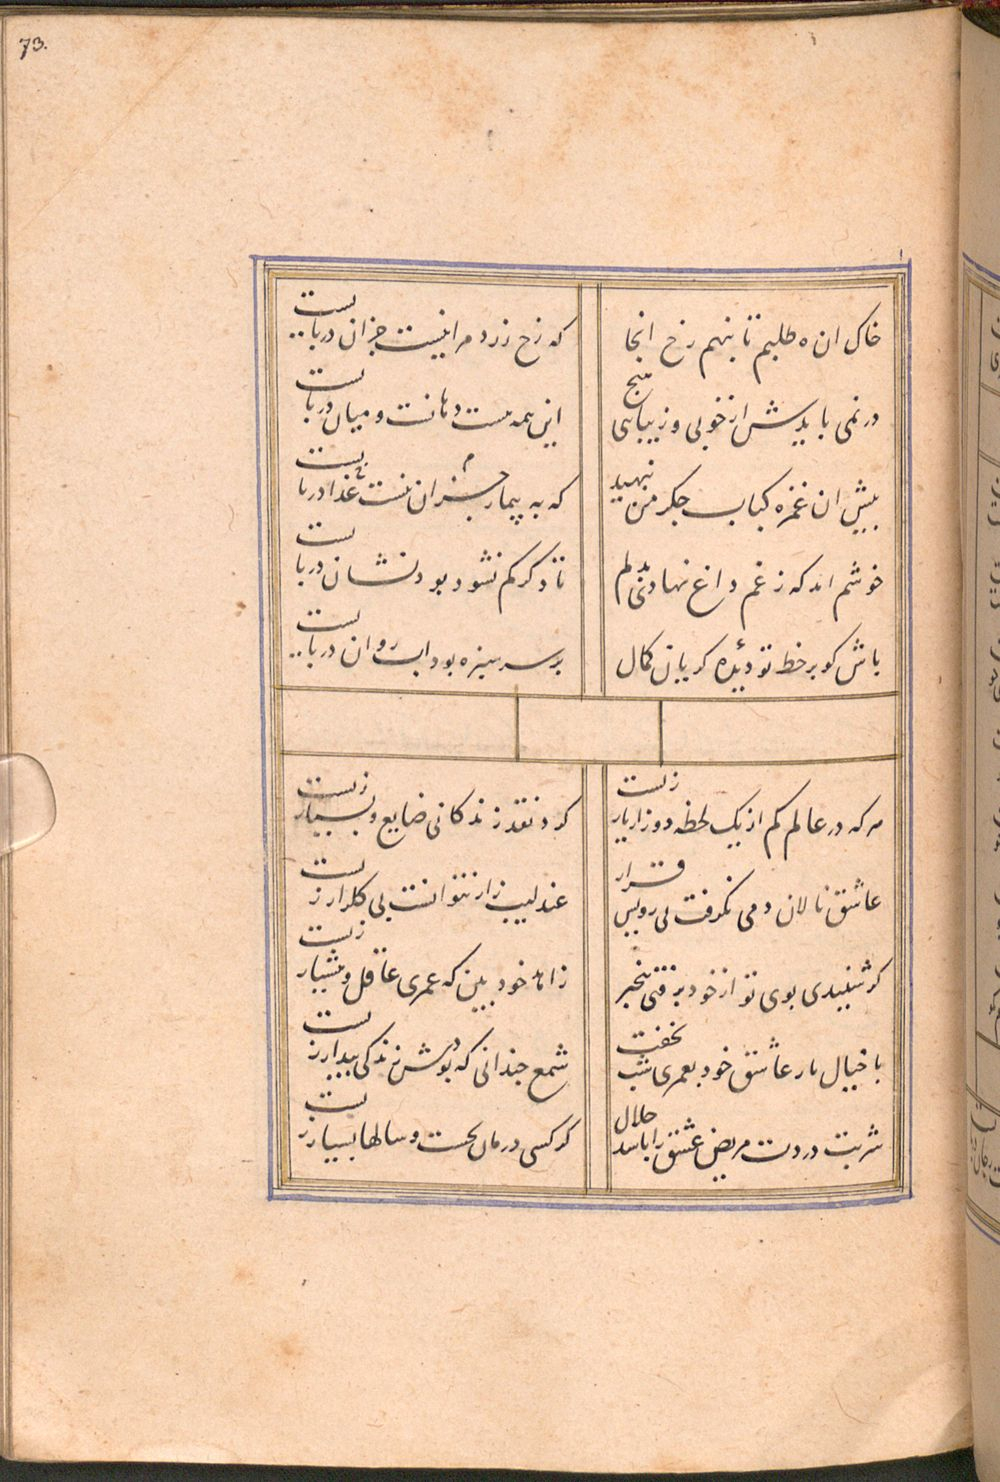 73.
خاک ان ره طلبم تا بنهم رخ انجا
که رخ زرد مرا نیست جز ان دربایست
در نمی بایدش از خوبی و زیبایی هیچ
این همه هست دهانت و میان دربایست
پیش ان غمزه کباب جگر من بنهید
که به بیمار جز ان نیست غذا دربایست
خوشم اند که ز غم داغ نهادی دلم
تا دگر کم نشود بود نشان دربایست
باش کو بر خط تو دیدهٔ گریان کمال
بر سر سبزه بود اب روان دربایست
هر که در عالم کم از یک لحظه دور از یار زیست
کرد نقد زندگانی ضایع و بسیار زیست
عاشق نالان دمی نگرفت بی رویش قرار
عندلیب زار نتوانست بی گلزار زیست
گر شنیدی بوی تو از خود برفتی بیخبر
زاهد خود بین که عمری عاقل و هشیار زیست
با خیال یار عاشق خود بعمری شب نخفت
شمع چندانی که بودش زندگی بیدار زیست
شربت دردت مریض عشق را باشد حلال
گر کسی درمان بجست و سالها بسیار